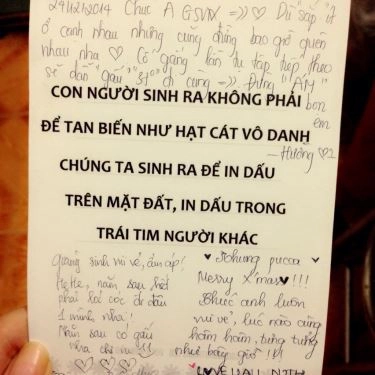 24/12/2014 Chúc A GSVN =)) ♡ Dù "sắp" ít
ở cạnh nhau nhưng cũng đừng bao giờ quên
nhau nha ♡ Cố gắng lần tụ tập tiếp theo
sẽ dẫn "gấu" đi cùng =)). Đừng "ÁM"
bọn
em
CON NGƯỜI SINH RA KHÔNG PHẢI
ĐỂ TAN BIẾN NHƯ HẠT CÁT VÔ DANH
- Hường ♡
CHÚNG TA SINH RA ĐỂ IN DẤU
TRÊN MẶT ĐẤT, IN DẤU TRONG
TRÁI TIM NGƯỜI KHÁC
Giáng sinh vui vẻ, ấm áp!
HeHe, năm sau hết
phải kêu cóc đi đâu
1 mình nha!
Năm sau có gấu
nha chị
♥ pucca ♥
Merry X'mas ♥ !!!
Chúc anh luôn
vui vẻ, lúc nào cũng
hâm hâm, tưng tưng
như bây giờ !!!